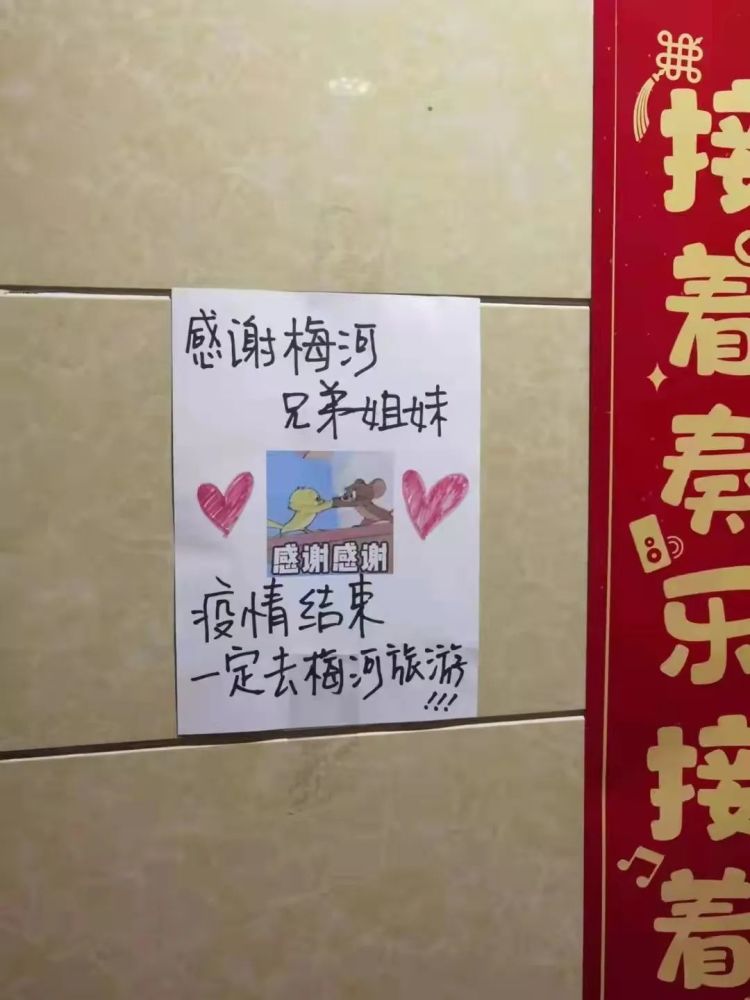 感谢梅河
兄弟姐妹
感谢感谢
疫情结束
一定去梅河旅游
!!!
接着奏乐接着